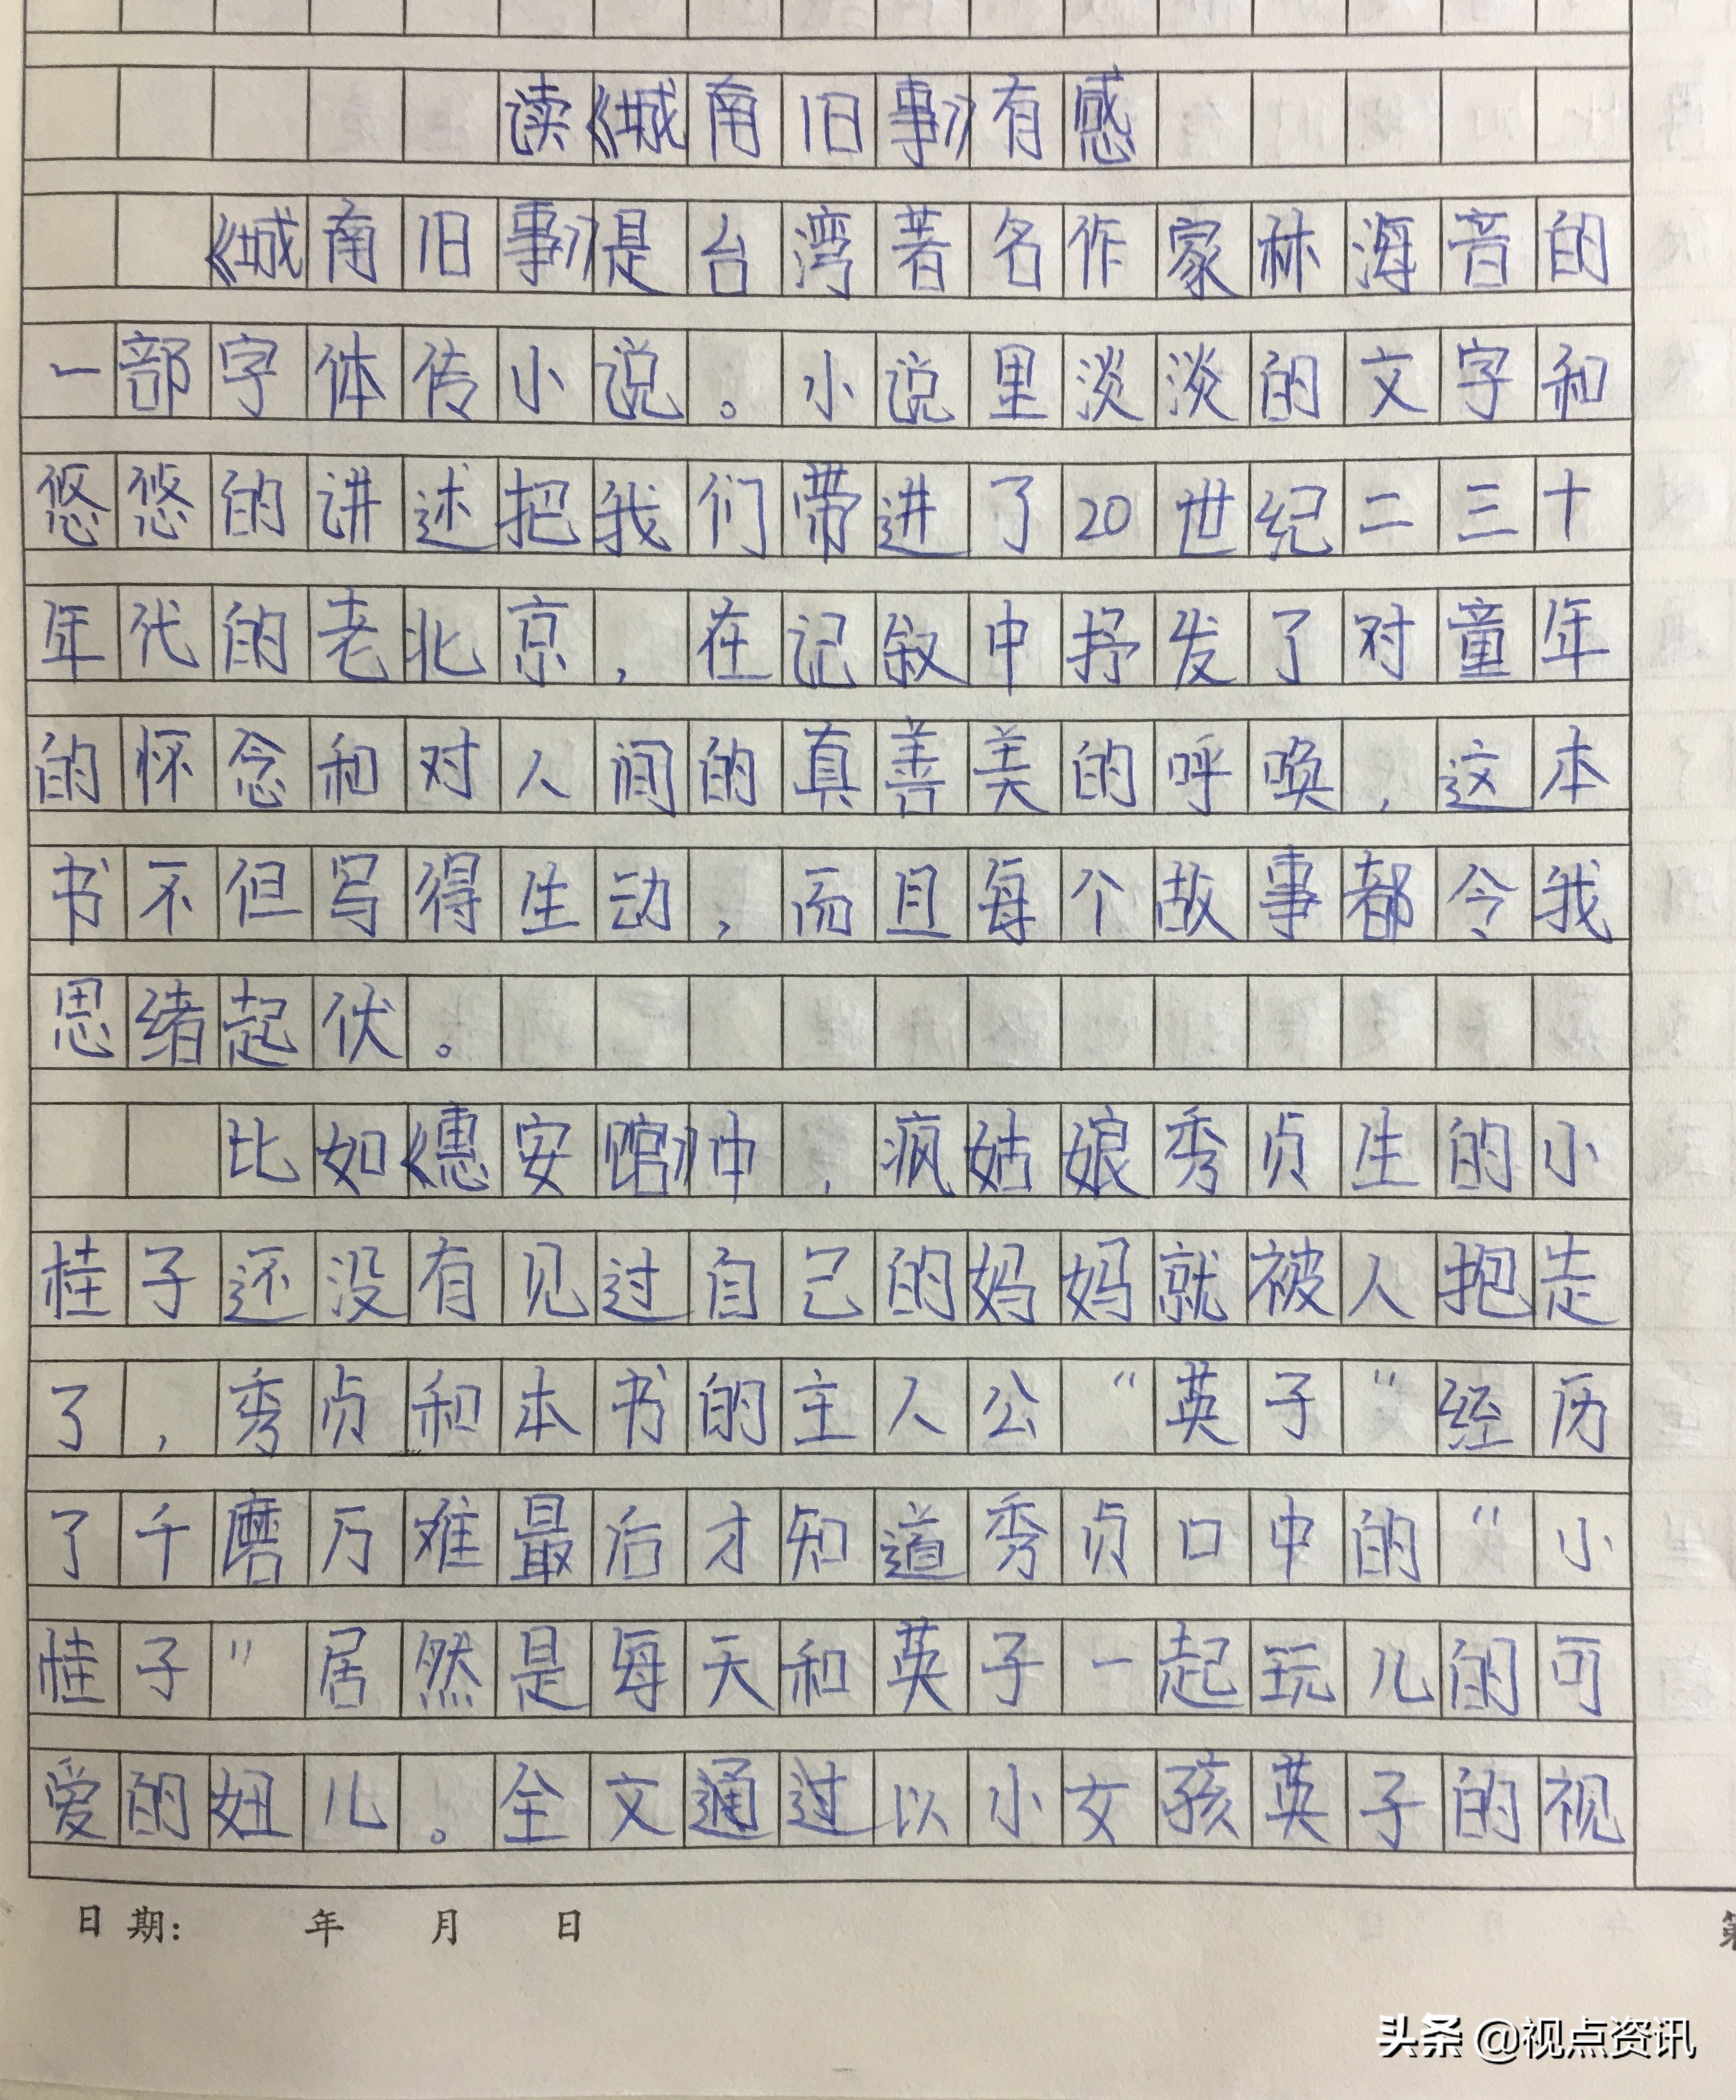 读《城南旧事》有感
《城南旧事》是台湾著名作家林海音的
一部字体传小说。小说里淡淡的文字和
悠悠的讲述把我们带进了20世纪二三十
年代的老北京，在记叙中抒发了对童年
的怀念和对人间的真善美的呼唤，这本
书不但写得生动，而且每个故事都令我
思绪起伏。
比如《惠安馆》中，疯姑娘秀贞生的小
桂子还没有见过自己的妈妈就被人抱走
了，秀贞和本书的主人公“英子”经历
了千磨万难最后才知道秀贞口中的“小
桂子”居然是每天和英子一起玩儿的可
爱的妞儿。全文通过以小女孩英子的视
日期： 年 月 日
头条 @视点资讯